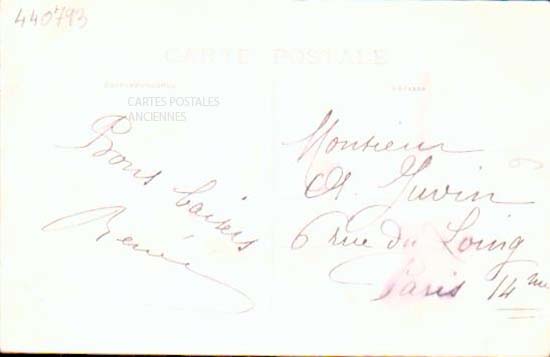 440793
CARTE POSTALE
CORRESPONDANCE
ADRESSE
CARTES POSTALES
ANCIENNES
Bons baisers
René
Monsieur
A. Juvin
6 rue du Loing
Paris 14me